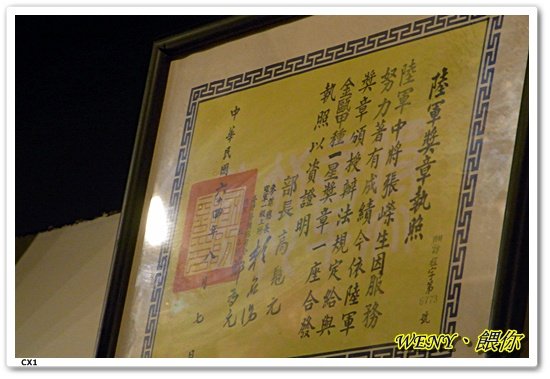 陸軍獎章執照
(65)銓定字第6773號
陸軍中將張嶸生因服務
努力著有成績今依陸軍
獎章頒授辦法規定給與
金甌甲種一星獎章一座合發
執照以資證明
部長高魁元
中華民國六十四年八月七日
WENY、餵你
CX1